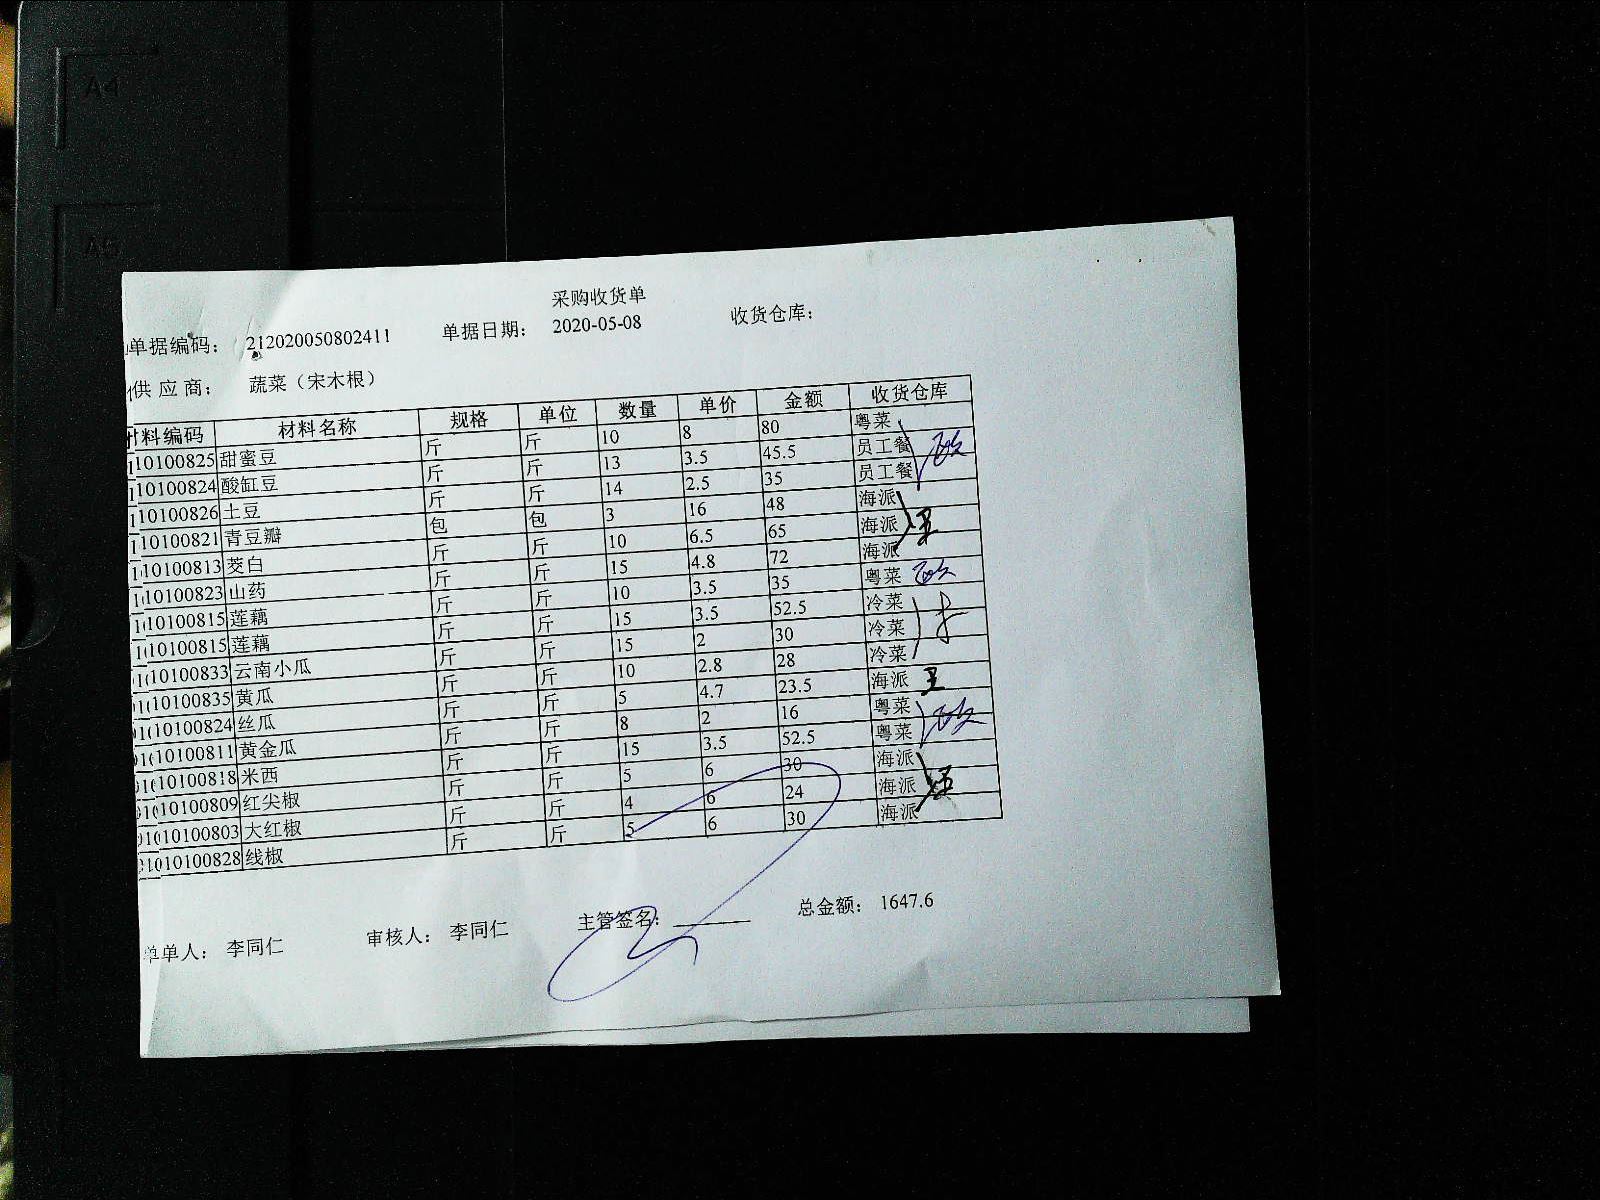 A4
A5
采购收货单
单据编码： 212020050802411 单据日期： 2020-05-08 收货仓库：
供 应 商： 蔬菜（宋木根）
材料编码 材料名称 规格 单位 数量 单价 金额 收货仓库
10100825 甜蜜豆 斤 斤 10 8 80 粤菜
10100824 酸缸豆 斤 斤 13 3.5 45.5 员工餐
10100826 土豆 斤 斤 14 2.5 35 员工餐
10100821 青豆瓣 包 包 3 16 48 海派
10100813 茭白 斤 斤 10 6.5 65 海派
10100823 山药 斤 斤 15 4.8 72 海派
10100815 莲藕 斤 斤 10 3.5 35 粤菜
10100815 莲藕 斤 斤 15 3.5 52.5 冷菜
10100833 云南小瓜 斤 斤 15 2 30 冷菜
10100835 黄瓜 斤 斤 10 2.8 28 冷菜
10100824 丝瓜 斤 斤 5 4.7 23.5 海派
10100811 黄金瓜 斤 斤 8 2 16 粤菜
10100818 米西 斤 斤 15 3.5 52.5 粤菜
10100809 红尖椒 斤 斤 5 6 30 海派
10100803 大红椒 斤 斤 4 6 24 海派
10100828 线椒 斤 斤 5 6 30 海派
单人： 李同仁 审核人： 李同仁 主管签名： 总金额： 1647.6